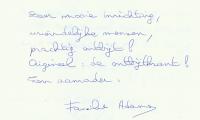 Zeer mooie inrichting,
vriendelijke mensen,
prachtig ontbijt!
Origineel: de ontbijtkrant!
Een aanrader.
Familie Adams